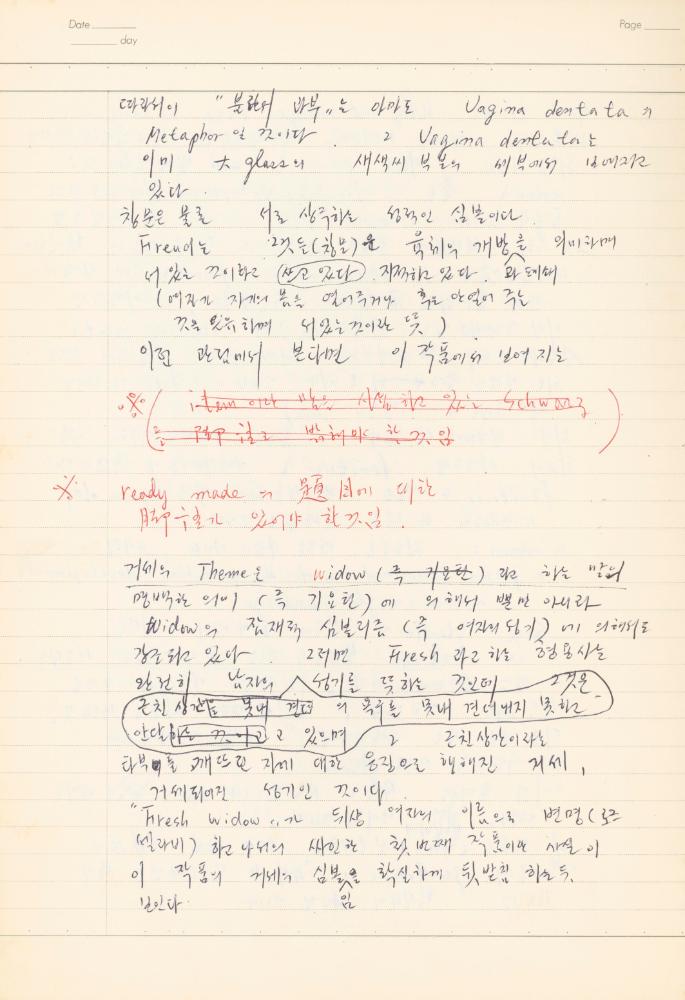 Date
day
Page
따라서 이 "불란서 과부"는 아마도 Vagina dentata의
Metaphor 일 것이다. 그 Vagina dentata는
이미 大 glass의 새색씨 부분의 세부에서 보여지고
있다.
창문은 물론 서로 상주하는 성적인 심볼이다.
Freud는 그것들(창문)은 육체의 개방을 의미하며
서 있는 것이라고 쓰고 있다. 지적하고 있다.
(여자가 자기의 몸을 열어주거나 혹은 안 열어 주는
것을 하며 서있는 것이라는 뜻)
이런 관점에서 본다면 이 작품에서 보여지는
※ ( 있는 Schwarz
를 밝혀야 할 것임 )
※ ready made의 題目에 대한
가 있어야 할 것임.
거세의 Theme은 widow (즉 기요틴) 라고 하는 말의
명백한 의미 (즉 기요틴)에 의해서 뿐만 아니라
widow의 잠재적 심볼리즘 (즉 여자의 성기)에 의해서도
강조되고 있다. 그러면 Fresh 라고 하는 형용사는
완전히 남자의 성기를 뜻하는 것인데 그것은
근친상간을 못내 견뎌 의 욕구를 못내 견뎌내지 못하고
안달하는 것이고 고 있으며 그 근친상간이라는
타부를 깨뜨린 자에 대한 응징으로 행해진 거세,
거세되어진 성기인 것이다.
"Fresh widow"가 뒤샹 여자의 이름으로 변명(로즈
셀라비) 하고 나서의 싸인한 첫번째 작품이란 사실이
이 작품의 거세의 심볼을 확실하게 뒷받침 하는 듯
임
보인다.